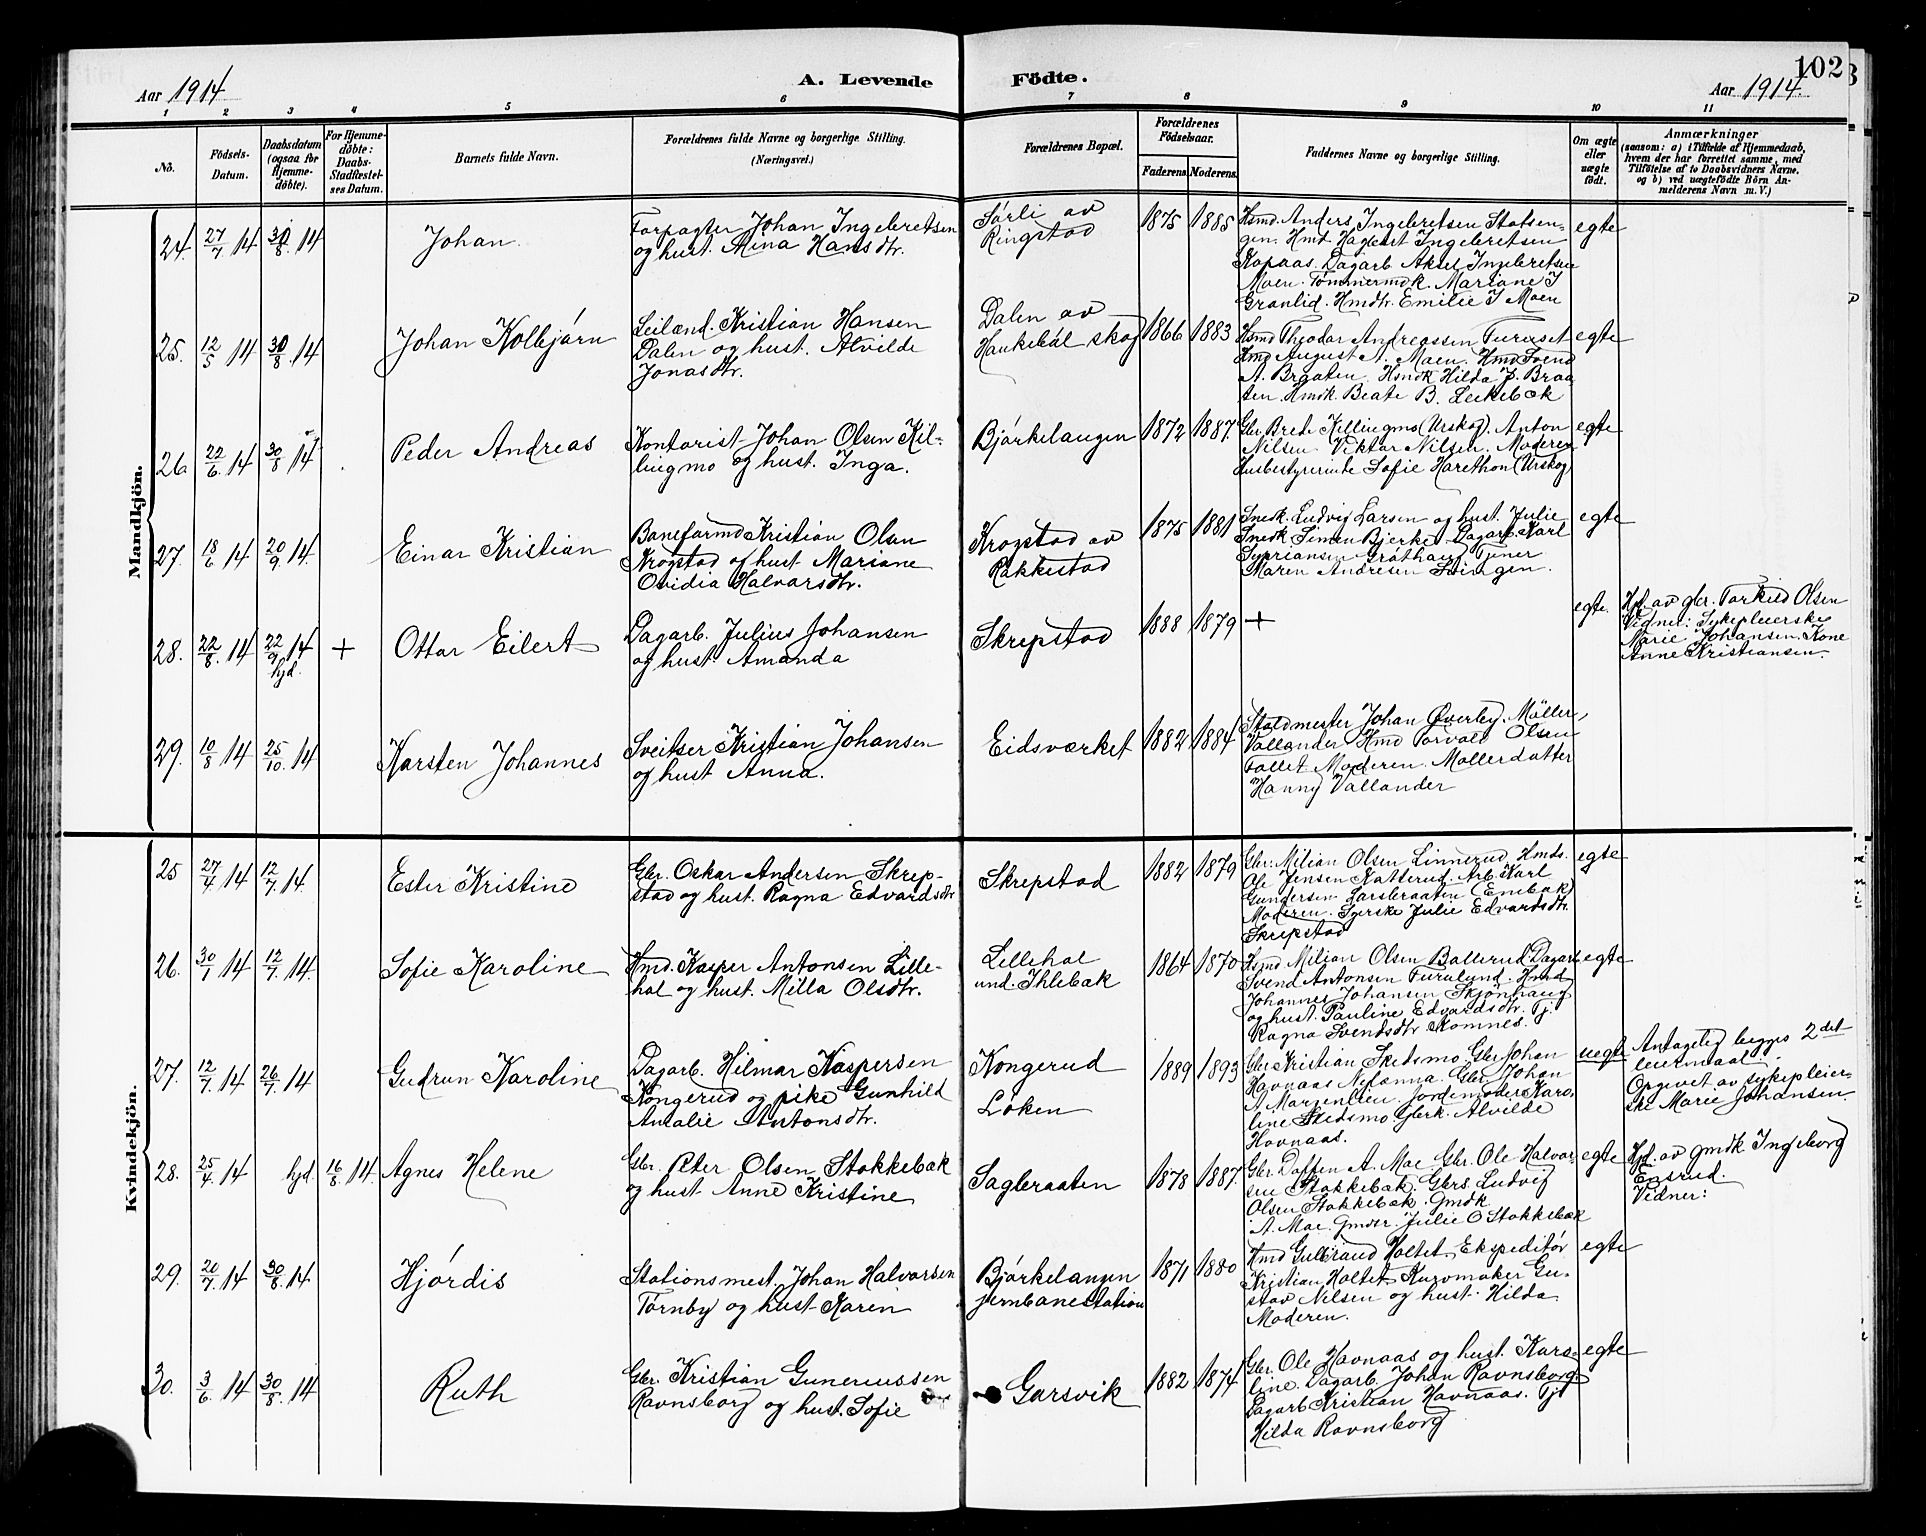 102
Aar 1914
A. Levende
Födte.
Aar 1914.
1 2 3 4 5 6 7 8 9 10 11
No.
Födsels-
Datum.
Daabsdatum
(ogsaa for
Hjemme-
döbte).
For Hjemme-
döbte:
Daabs-
Stadfæstel-
ses Datum.
Barnets fulde Navn.
Forældrenes fulde Navne og borgerlige Stilling.
(Næringsvei.)
Forældrenes Bopæl.
Forældrenes
Födselsaar.
Faderens.
Moderens.
Faddernes Navne og borgerlige Stilling.
Om ægte
eller
uægte
födt.
Anmærkninger
(saasom: a) i Tilfælde af Hjemmedaab,
hvem der har forrettet samme, med
Tilföielse af to Daabsvidners Navne.
og b) ved uægtefödte Börn An-
melderens Navn m. V.)
Mandkjön.
24. 27/7 14 30/8 14
Johan
Forpagter Johan Ingebretsen
og hust. Mina Hansdtr.
Sørli av
Ringstad
1875 1885
Hsmd. Anders Ingebretsen Statsen-
gen. Hmd Hagbart Ingebretsen
Kopaas. Dagarb. Aksel Ingebretsen
Moen. Tømmermdk. Mariane I
Granlid. Hmdtr. Emilie I Moen
egte
25. 12/5 14 30/8 14
Johan Kolbjørn
Leilænd. Kristian Hansen
Dalen og hust. Alvilde
Jonasdtr.
Dalen av
Haukebøl skog
1866 1883
Hsmd Theodor Andreassen Furuset
Hmd August A. Moen. Hmd Svend
A. Braaten. Hsmdk Hilda P. Braa-
ten. Hmdk Beate B. Lerkebæk
egte
26 22/6 14 30/8 14
Peder Andreas
Kontorist Johan Olsen Kil-
lingmo og hust. Inga.
Bjørkelangen
1872 1887.
Gbr. Brede Killingmo (Urskog). Anton
Nilsen. Viktor Nilsen. Moderen
Husbestyrerinde Sofie Harethon (Urskog)
egte
27. 18/6 14 20/9 14.
Einar Kristian
Baneformd Kristian Olsen
Krogstad og hust. Mariane
Ovidia Halvorsdtr.
Krogstad av
Rakkestad
1875 1881
Snedk. Ludvig Larsen og hust. Julie
Snedk Simen Bjerke. Dagarb. Karl
Sypriansen Gråthaug Tjener
Maren Andresen Svingen.
egte
28. 22/8. 14 22/9 14 hjd. +
Ottar Eilert
Dagarb. Julius Johansen
og hust. Amanda
Skrepstad
1888 1879
+
egte.
Hjd. av gbr. Torkild Olsen
Vidner: Sykepleierske
Marie Johansen. Kone
Anne Kristiansen.
29. 10/8 14 25/10. 14
Karsten Johannes
Sveitser Kristian Johansen
og hust Anna.
Eidsværket
1882 1884
Staldmester Johan Øverby. Møller
Vallander Hmd Torvald Olsen
Tollet. Moderen. Møllerdatter
Hanny Vallander
Kvindekjön.
25 27/4 14 12/7 14.
Ester Kristine
Gbr. Oskar Andersen Skrep-
stad og hust. Ragna Edvardsdtr
Skrepstad
1882 1879
Gbr. Milian Olsen Linnerud. Hmds.
Ole Jensen Katterud. Arb. Karl
Gundersen Larsbraaten (Enebak)
Moderen. Syerske Julie Edvardsdtr.
Skrepstad
egte
26. 30/1 14 12/7. 14.
Sofie Karoline
Hmd. Kasper Antonsen Lille-
hol og hust. Milla Olsdtr.
Lillehol
und. Ihlebæk
1864 1870
Hsmd. Milian Olsen Ballerud Dagarb
Svend Antonsen Furulund. Hmd
Johannes Johansen Skjønhaug
og hust. Pauline Edvardsdtr. Tj.
Ragna Svendsdtr Komnes.
egte
27. 12/7. 14 26/7. 14
Gudrun Karoline
Dagarb. Hilmar Kaspersen
Kongerud og pike Gunhild
Amalie Antonsdtr.
Kongerud
Løken
1889 1893
Gbr Kristian Skedsmo. Gbr Johan
Havnaas Nyjanna. Gbr. Johan
A. Marzenlien. Jordemoder Karo-
line Skedsmo. Gbrk. Alvilde
Hovnaas.
uegte
Antagelig begges 2det
leiermaal.
Opgivet av sykepleier-
ske Marie Johansen
28. 25/4. 14 hjd. 16/8. 14.
Agnes Helene
Gbr. Peter Olsen Stokkebæk
og hust. Anne Kristine
Sagbraaten
1878 1887.
Gbr. Daffen A. Mae Gbr. Ole Halvor-
sen Stokkebæk. Gbrs. Ludvig
Olsen Stokkebæk. Gmdk
A. Mae. Gmdtr. Julie O Stokkebæk
egte
Hjd. av gmdk Ingeborg
Ensrud.
Vidner:
29. 20/7 14 30/8. 14
Hjørdis
Stationsmest. Johan Halvorsen
Tørnby og hust. Karen
Bjørkelangen
jernbanestation
1871 1880
Hmd Gulbrand Holtet. Ekspeditør
Kristian Holtet. Kurvmaker Gu-
stav Nilsen og hust. Hilda.
Moderen.
egte
30. 3/6. 14 30/8. 14
Ruth
Gbr. Kristian Guneriussen
Ravnsborg og hust. Sofie
Garsvik
1882 1874
Gbr. Ole Havnaas og hust. Karo-
line. Dagarb. Johan Ravnsborg
Dagarb Kristian Havnaas. Tj
Hilda Ravnsborg
egte